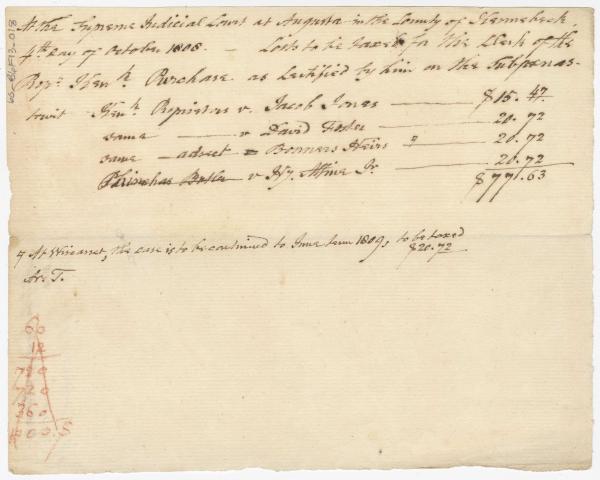 At the Supreme Judicial Court at Augusta in the County of Kennebeck,
4th day of October 1808. — Costs to be taxed for the Clerk of the
Propr. Kenk. Purchase as Certified by him on the Subpenas-
towit Kenk. Propietors v. Jacob Jones — $15.47
same — v David Foster — 20.72
same — advect Bonners Heirs " — 20.72
Phinehas Butler v Hy. Jr. — 20.72
$77.63
At Wiscasset, the case is to be continued to June term 1809, to be taxed
$20.72
Ar. T.
60
12
720
720
360